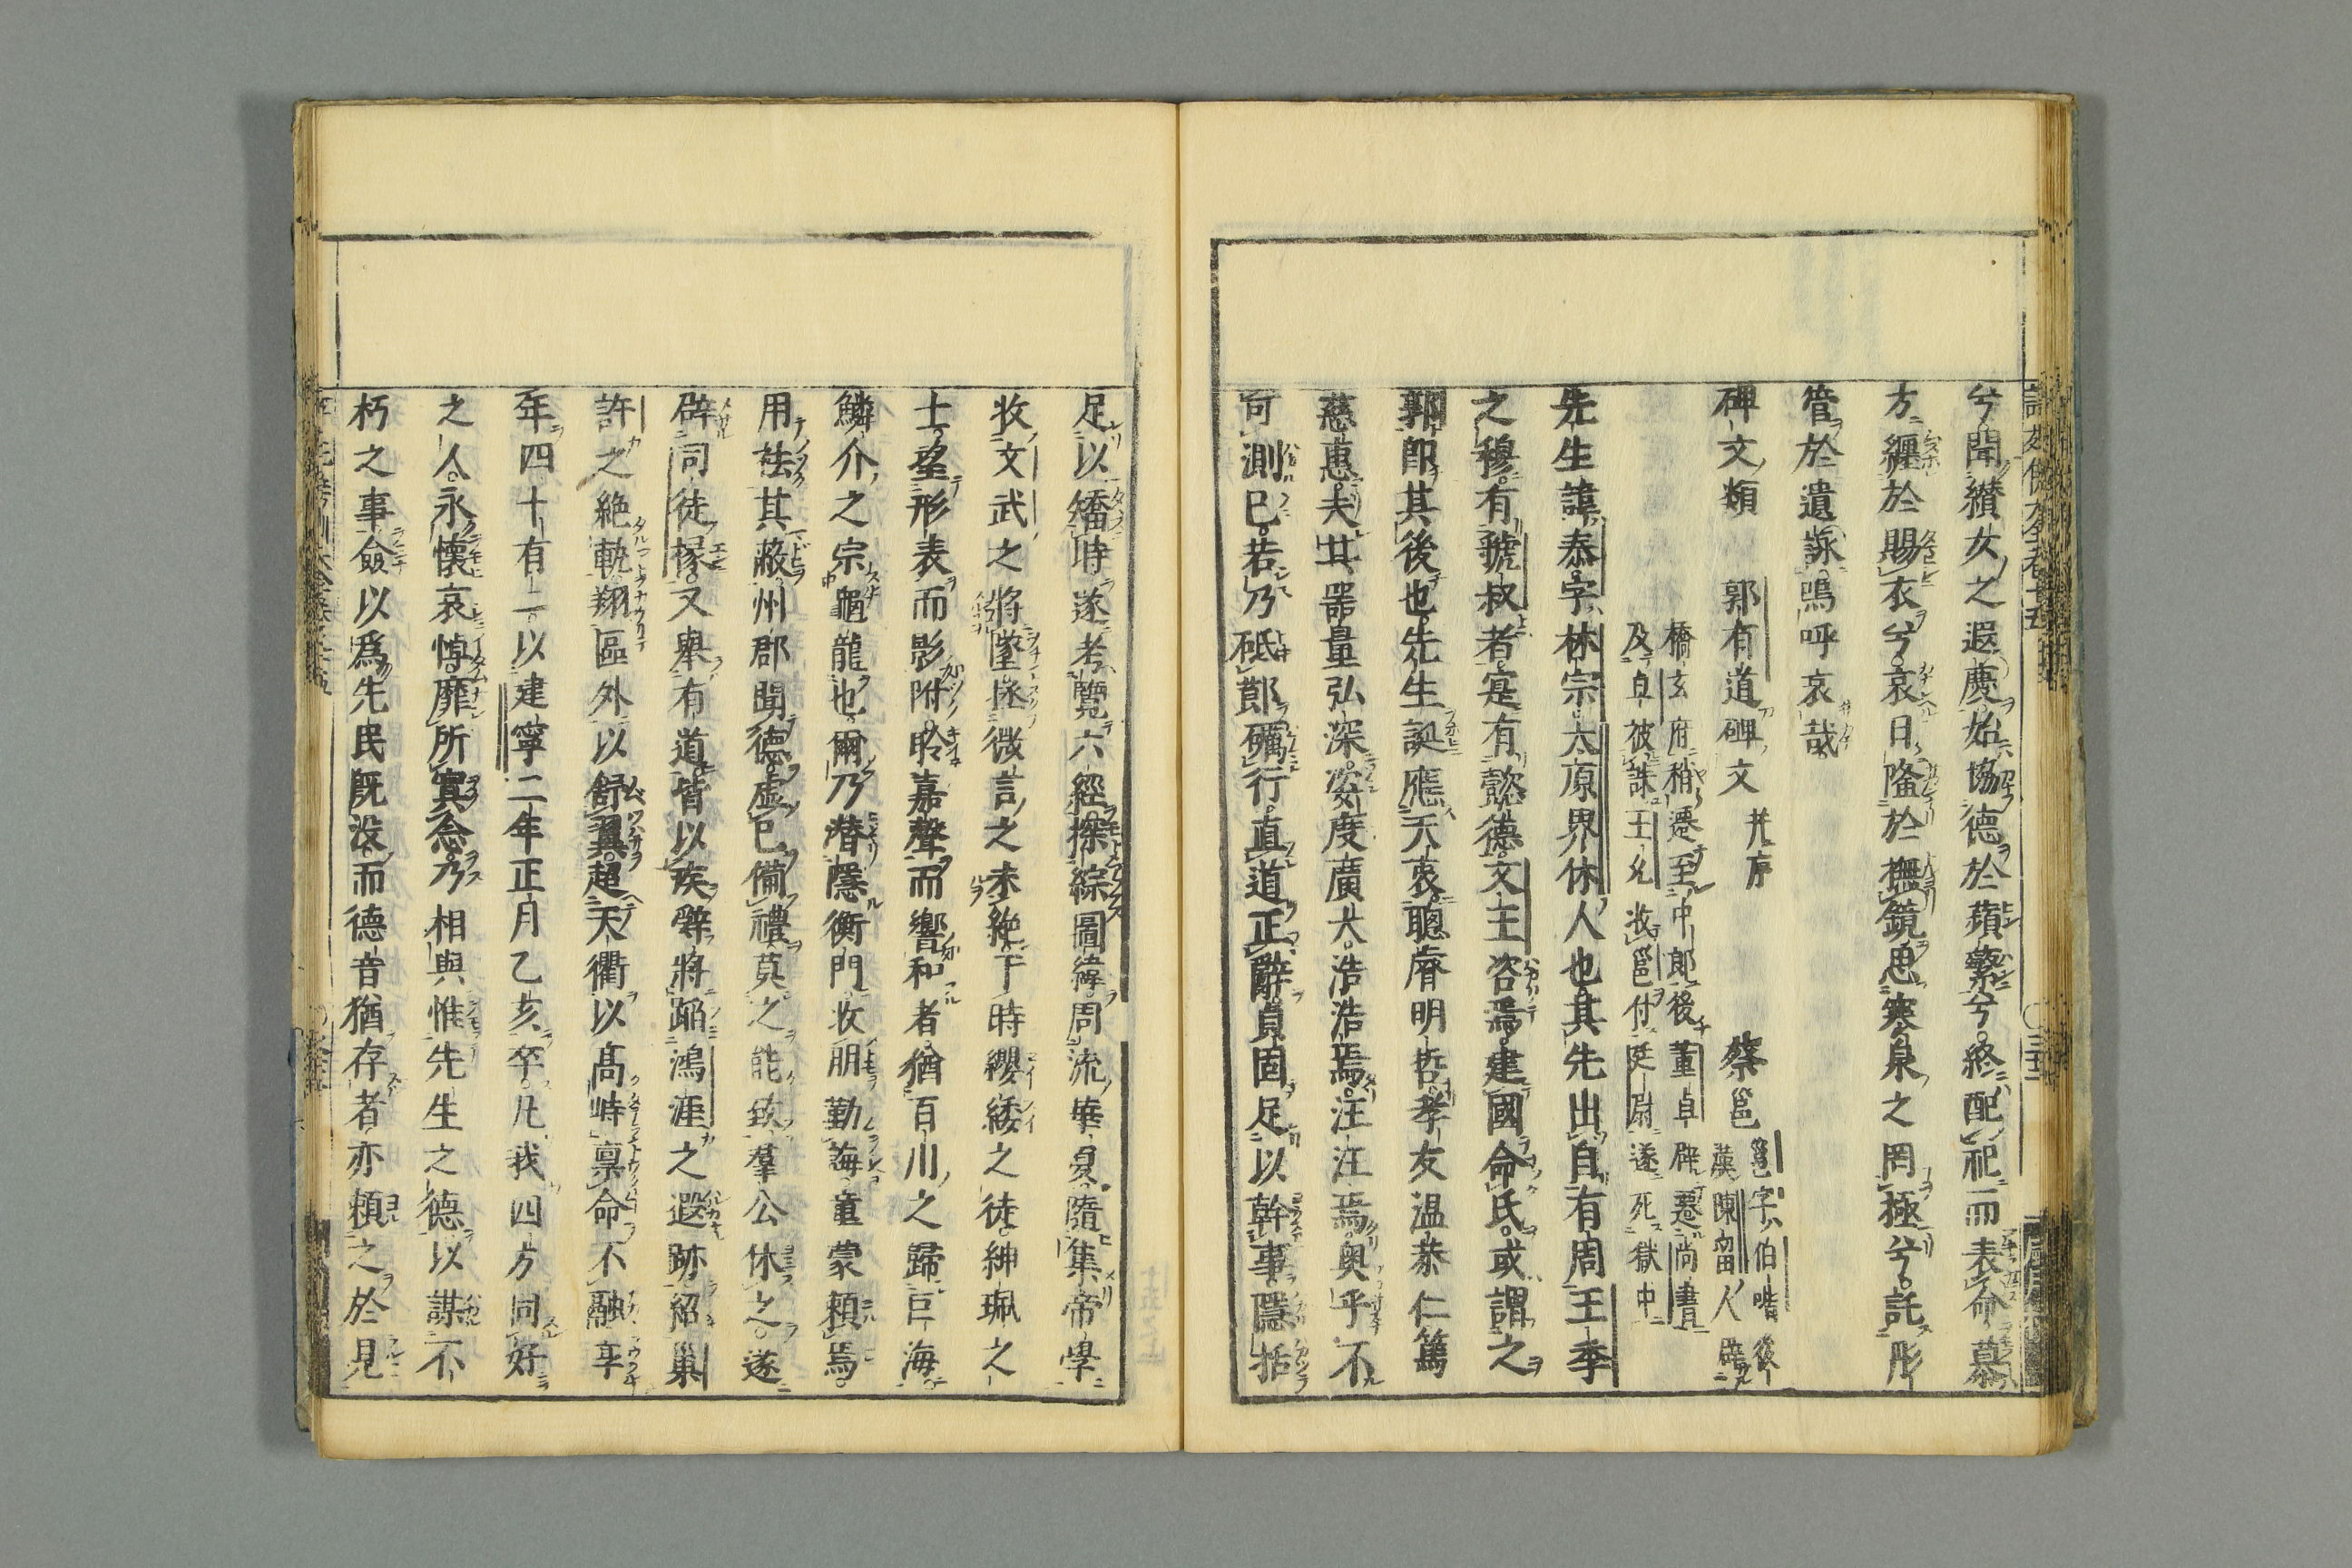 兮聞纉女之遐慶始協德於蘋蘩兮終配祀而表命慕
方纏於賜衣兮哀日隆於撫鏡思寒泉之罔極兮託彤
管於遺詠嗚呼哀哉
碑文類　郭有道碑文并序　蔡邕　邕字伯喈後漢陳留人辟
橋玄府稍遷至中郎後董卓辟遷尚書
及卓被誅王允收邕付廷尉遂死獄中
先生諱泰字林宗太原界休人也其先出自有周王季
之穆有虢叔者寔有懿德文王咨焉建國命氏或謂之
郭即其後也先生誕應天衷聰睿明哲孝友温恭仁篤
慈惠夫其器量弘深姿度廣大浩浩焉汪汪焉奥乎不
可測已若乃砥節礪行直道正辭貞固足以幹事隱括
足以矯時遂考覽六經探綜圖緯周流華夏隨集帝學
收文武之將墜拯微言之未絶于時纓緌之徒紳珮之
士望形表而影附聆嘉聲而響和者猶百川之歸巨海
鱗介之宗龜龍也爾乃潜隱衡門收朋勤誨童蒙頼焉
用袪其蔽州郡聞德虚已備禮莫之能致羣公休之遂
辟司徒掾又舉有道皆以疾辭將蹈鴻涯之遐跡紹巢
許之絶軌翔區外以舒翼超天衢以高峙禀命不融享
年四十有二以建寧二年正月乙亥卒凡我四方同好
之人永懷哀悼靡所寘念乃相與惟先生之德以謀不
朽之事僉以爲先民既没而德音猶存者亦頼之於見